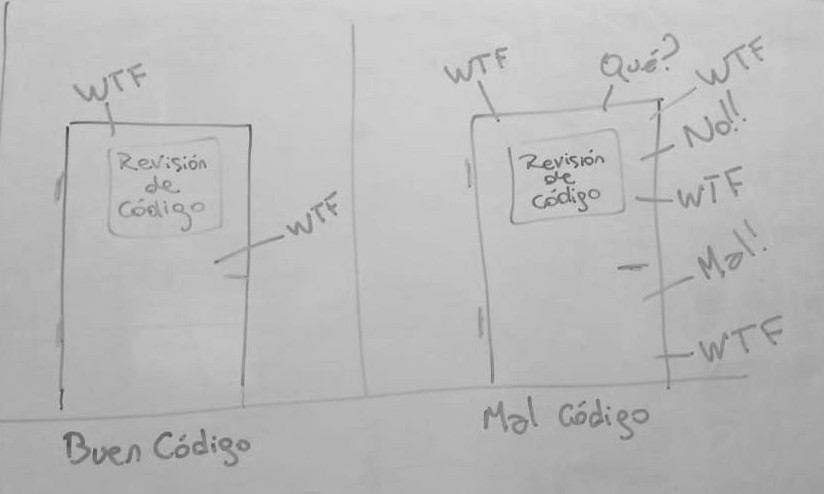 WTF
Revisión
de
Código
WTF
Buen Código
WTF
Qué?
WTF
No!!
Revisión
de
Código
WTF
Mal!
WTF
Mal Código